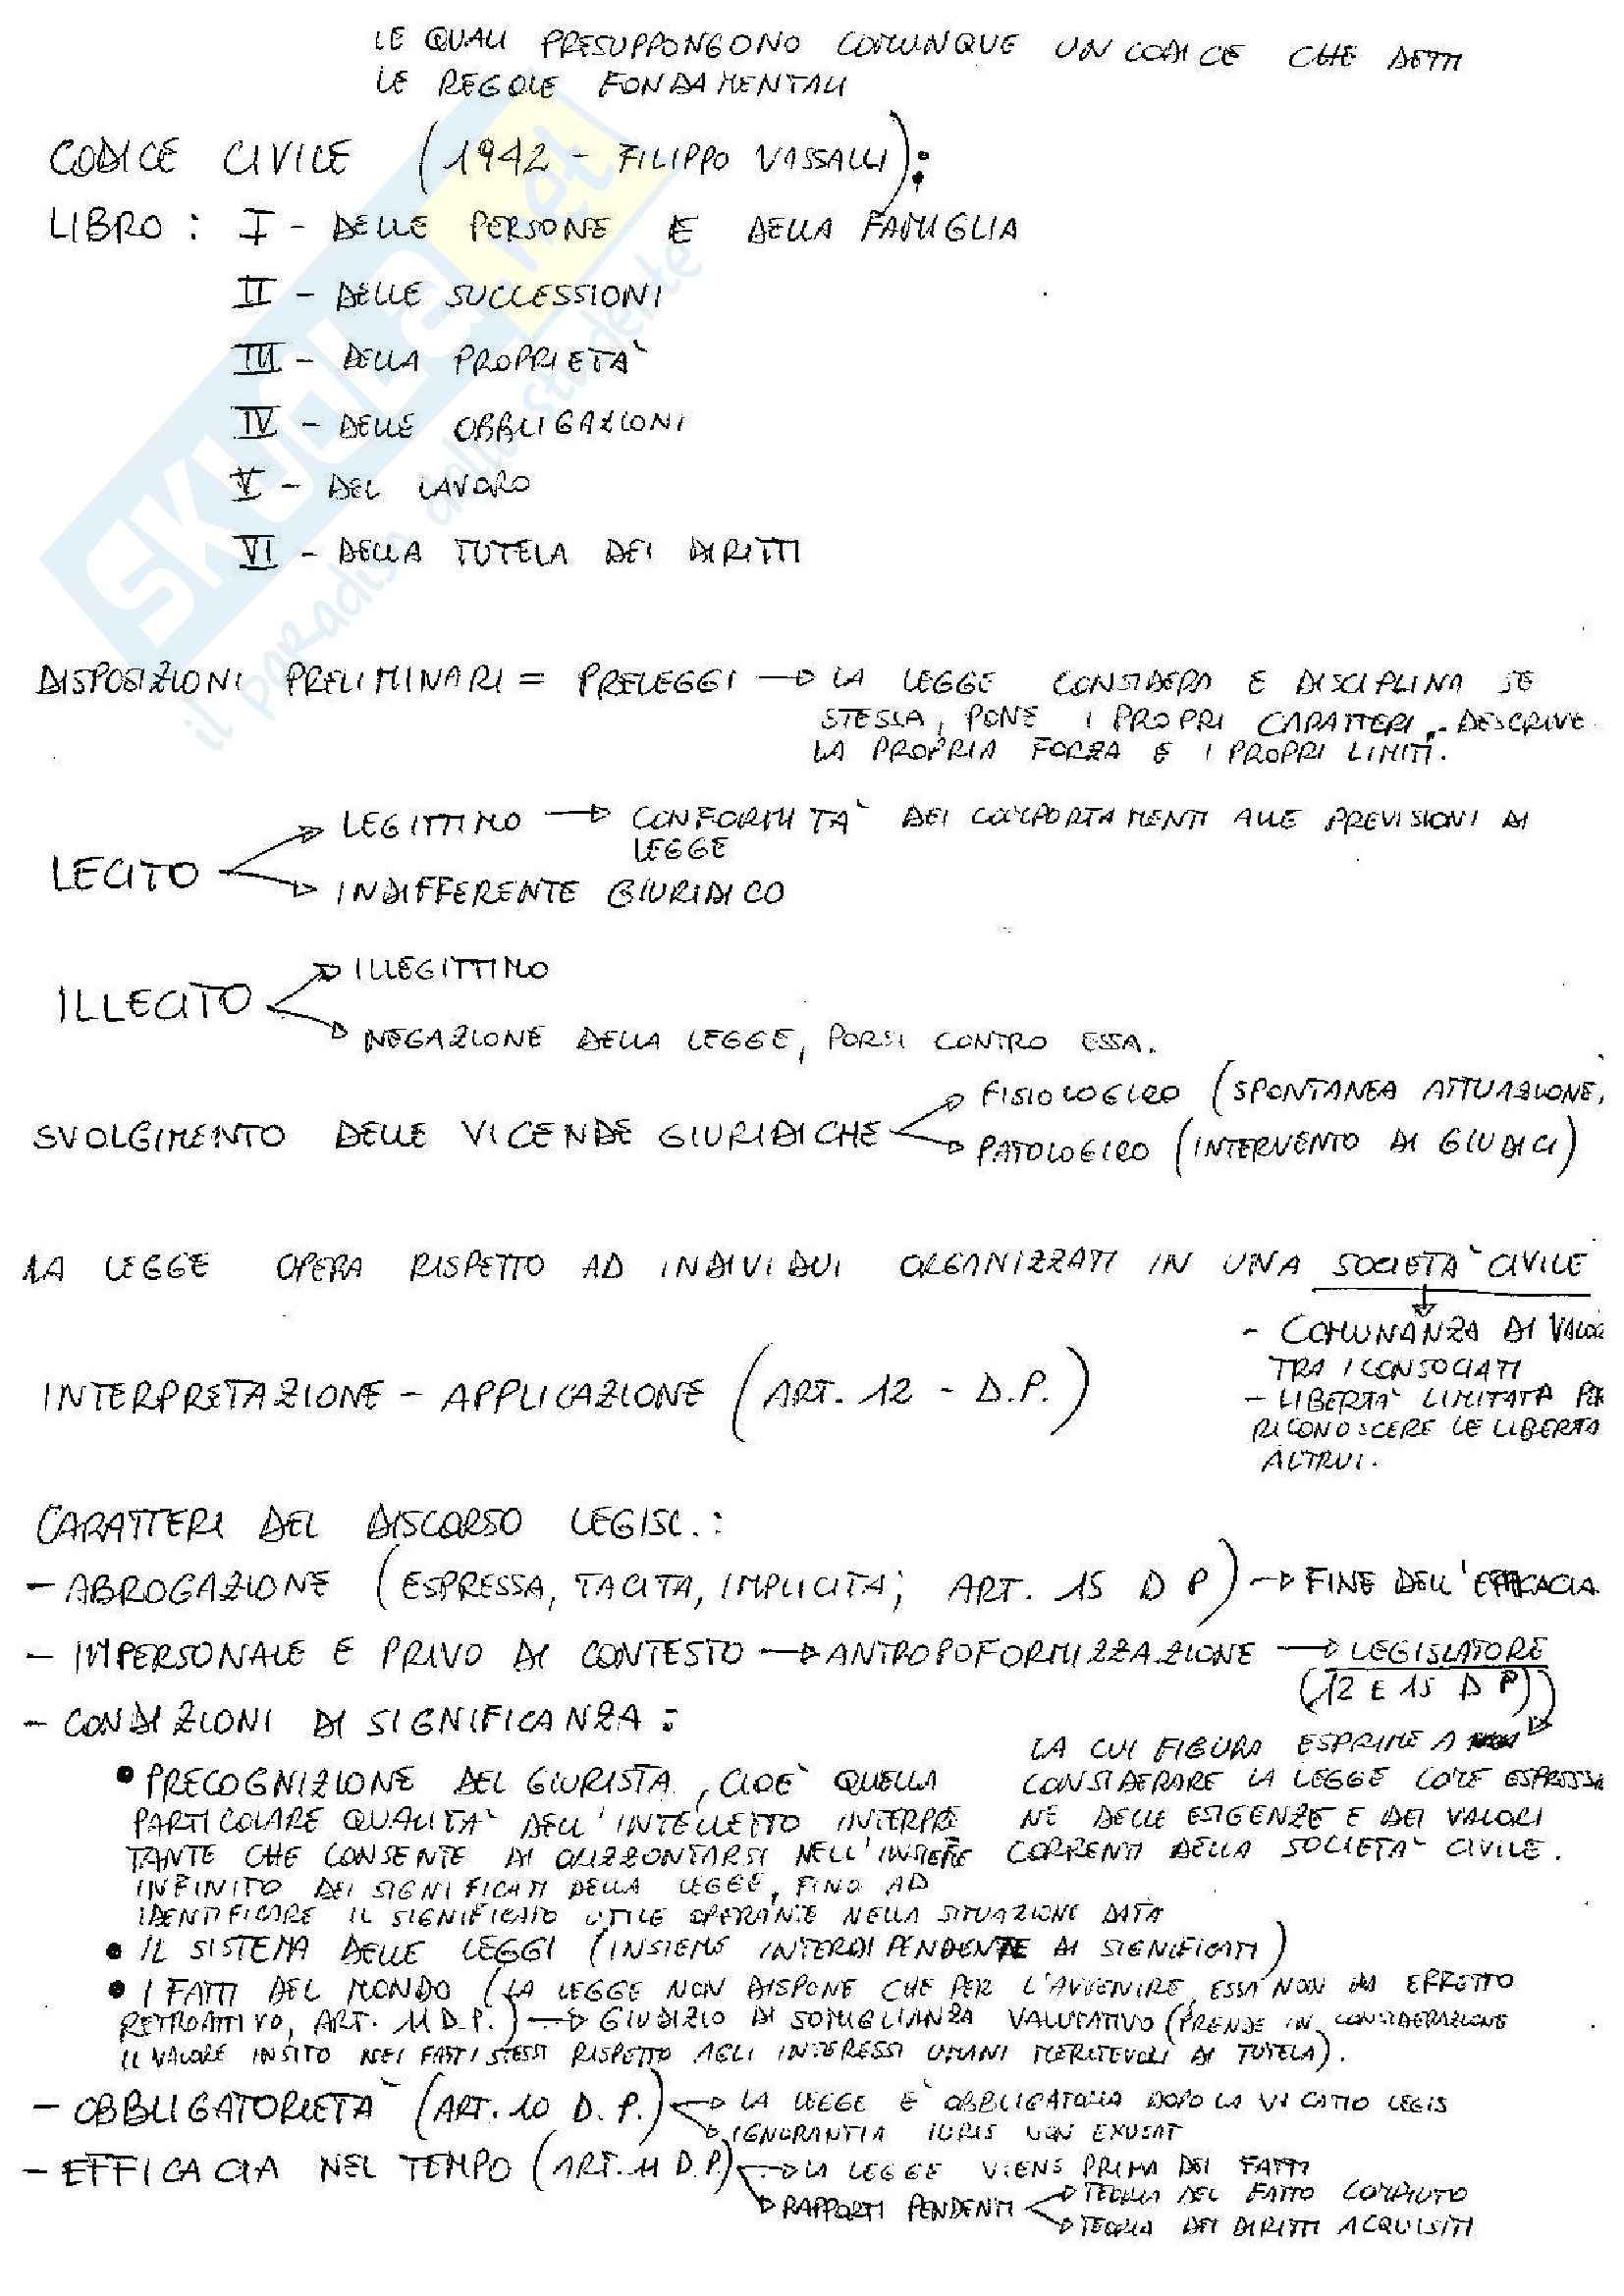 LE QUALI PRESUPPONGONO COMUNQUE UN CODICE CHE DETTI
LE REGOLE FONDAMENTALI
CODICE CIVILE (1942 - FILIPPO VASSALLI):
LIBRO: I - DELLE PERSONE E DELLA FAMIGLIA
II - DELLE SUCCESSIONI
III - DELLA PROPRIETÀ
IV - DELLE OBBLIGAZIONI
V - DEL LAVORO
VI - DELLA TUTELA DEI DIRITTI
SKUOLA.net
il paradiso dello studente
DISPOSIZIONI PRELIMINARI = PRELEGGI → LA LEGGE CONSIDERA E DISCIPLINA SE
STESSA, PONE I PROPRI CARATTERI, DESCRIVE
LA PROPRIA FORZA E I PROPRI LIMITI.
LEGITTIMO → CONFORMITÀ DEI COMPORTAMENTI ALLE PREVISIONI DI
LEGGE
LECITO
INDIFFERENTE GIURIDICO
ILLEGITTIMO
ILLECITO
NEGAZIONE DELLA LEGGE, PORSI CONTRO ESSA.
FISIOLOGICO (SPONTANEA ATTUAZIONE,
SVOLGIMENTO DELLE VICENDE GIURIDICHE
PATOLOGICO (INTERVENTO DI GIUDICI)
LA LEGGE OPERA RISPETTO AD INDIVIDUI ORGANIZZATI IN UNA SOCIETÀ CIVILE
- COMUNANZA DI VALOR
TRA I CONSOCIATI
- LIBERTÀ LIMITATA PER
RICONOSCERE LE LIBERTA
ALTRUI.
INTERPRETAZIONE - APPLICAZIONE (ART. 12 - D.P.)
CARATTERI DEL DISCORSO LEGISL.:
- ABROGAZIONE (ESPRESSA, TACITA, IMPLICITA; ART. 15 D P) → FINE DELL'EFFICACIA
- IMPERSONALE E PRIVO DI CONTESTO → ANTROPOFORMIZZAZIONE → LEGISLATORE
(12 E 15 D P)
LA CUI FIGURA ESPRIME A
CONSIDERARE LA LEGGE COME ESPRESSIO
NE DELLE ESIGENZE E DEI VALORI
CORRENTI DELLA SOCIETÀ CIVILE.
- CONDIZIONI DI SIGNIFICANZA:
• PRECOGNIZIONE DEL GIURISTA, CIOÈ QUELLA
PARTICOLARE QUALITÀ DELL'INTELLETTO INTERPRE
TANTE CHE CONSENTE DI ORIZZONTARSI NELL'INSIEME
INFINITO DEI SIGNIFICATI DELLA LEGGE, FINO AD
IDENTIFICARE IL SIGNIFICATO UTILE OPERANTE NELLA SITUAZIONE DATA
• IL SISTEMA DELLE LEGGI (INSIEME INTERDIPENDENTE DI SIGNIFICATI)
• I FATTI DEL MONDO (LA LEGGE NON DISPONE CHE PER L'AVVENIRE, ESSA NON HA EFFETTO
RETROATTIVO, ART. 11 D.P.) → GIUDIZIO DI SOMIGLIANZA VALUTATIVO (PRENDE IN CONSIDERAZIONE
IL VALORE INSITO NEI FATTI STESSI RISPETTO AGLI INTERESSI UMANI MERITEVOLI DI TUTELA).
- OBBLIGATORIETÀ (ART. 10 D.P.) → LA LEGGE È OBBLIGATORIA DOPO LA VACATIO LEGIS
→ IGNORANTIA IURIS NON EXUSAT
- EFFICACIA NEL TEMPO (ART. 11 D.P.) → LA LEGGE VIENE PRIMA DEI FATTI
→ RAPPORTI PENDENTI → TEORIA DEL FATTO COMPIUTO
→ TEORIA DEI DIRITTI ACQUISITI